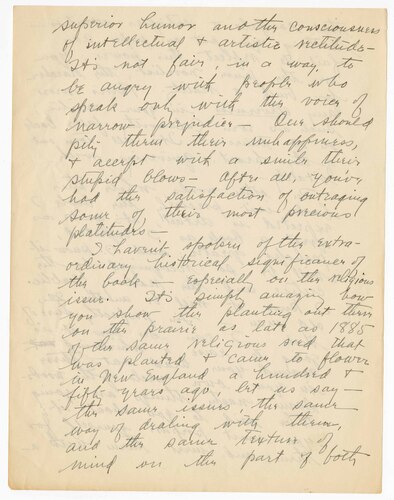 superior humor and the consciousness
of intellectual & artistic rectitude —
It's not fair, in a way, to
be angry with people who
speak out with the voice of
narrow prejudice — One should
pity them their unhappiness,
& accept with a smile their
stupid blows — After all, you've
had the satisfaction of outraging
some of their most precious
platitudes —
I haven't spoken of the extra-
ordinary historical significance of
the book — especially on the religious
issue. It's simply amazing how
you show the planting out there
on the prairie as late as 1885
of the same religious seed that
was planted & came to flower
in New England a hundred &
fifty years ago, let us say —
the same issues, the same
way of dealing with them,
and the same texture of
mind on the part of both